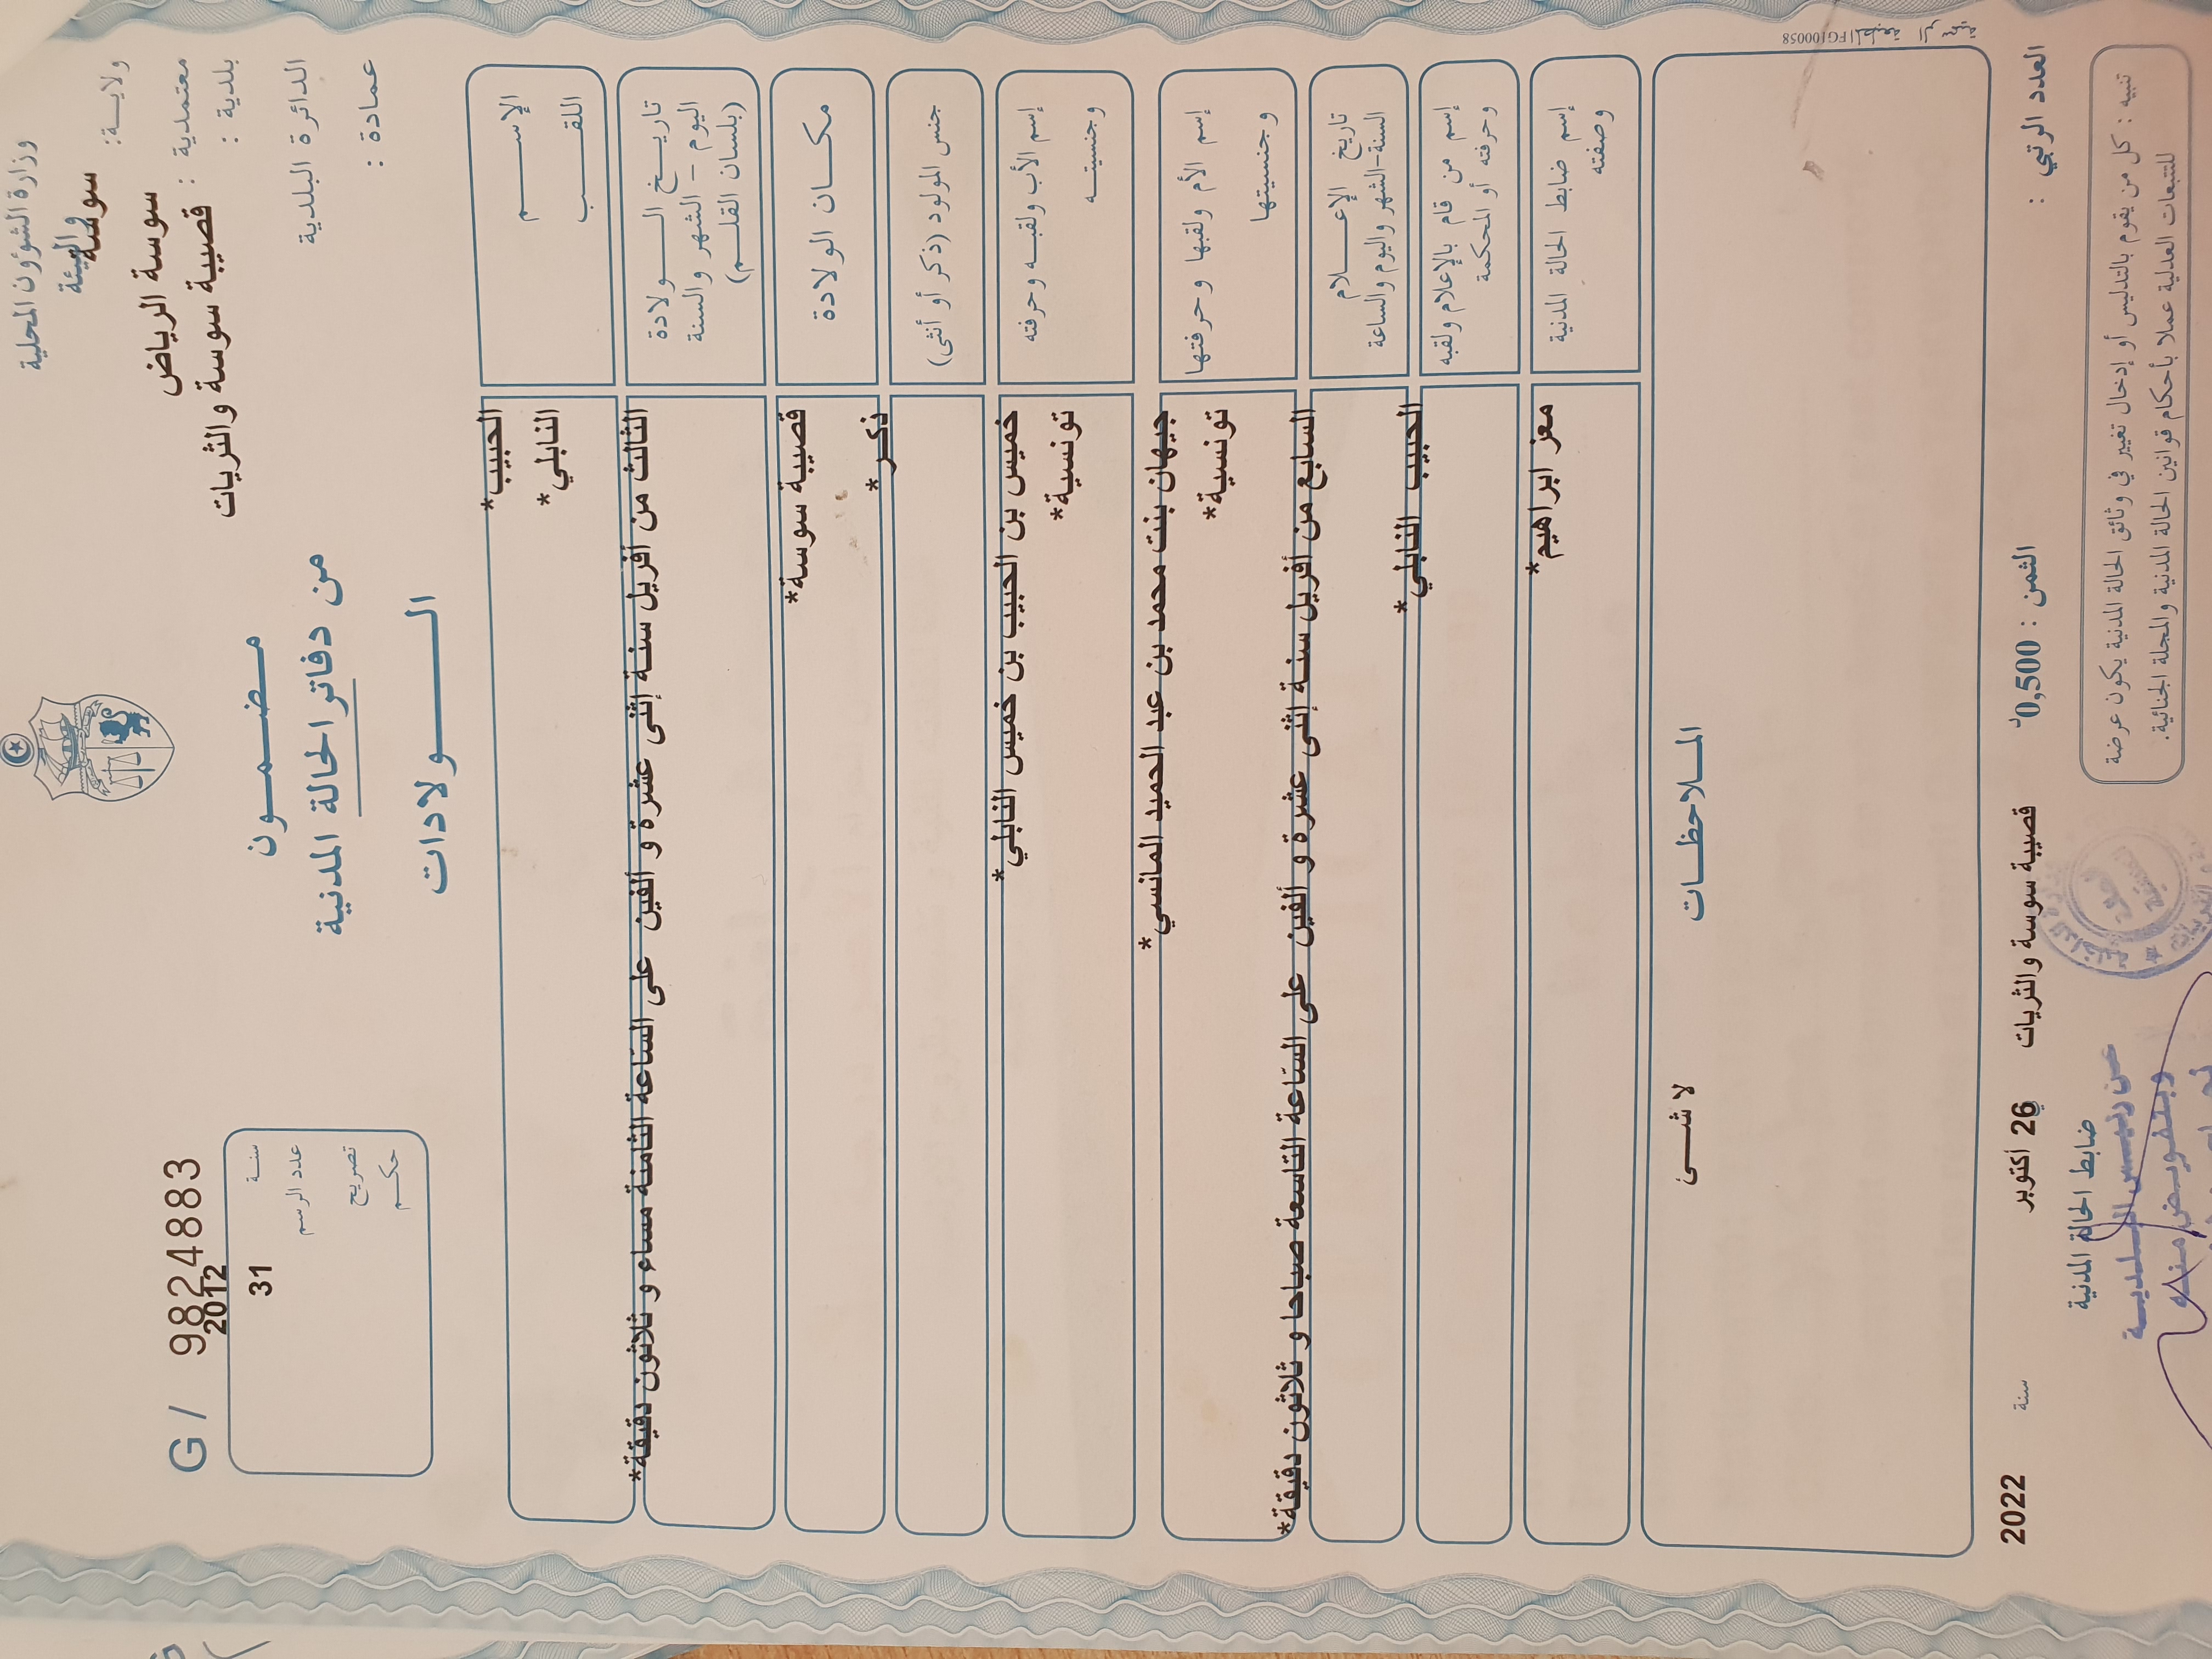 وزارة الشؤون المحلية
والبيئة
ولايــة: سوسة
معتمدية : سوسة الرياض
بلدية : قصيبة سوسة والثريات
الدائرة البلدية
عمادة :
G / 9824883
سنة 2012
عدد الرسم 31
تصريح
حكم
مضمون
من دفاتر الحالة المدنية
الـولادات
الإسـم الحبيب*
اللقـب النابلي*
تاريـخ الـولادة الثالث من أفريل سنة إثنى عشرة و ألفين على الساعة الثامنة مساء و ثلاثون دقيقة*
اليوم – الشهر والسنة
(بلسان القلـم)
مكـان الولادة قصيبة سوسة*
جنس المولود (ذكر أو أنثى) ذكر*
إسم الأب ولقبـه وحرفته خميس بن الحبيب بن خميس النابلي*
وجنسيتـه تونسية*
إسم الأم ولقبها وحرفتها جيهان بنت محمد بن عبد الحميد المانسي*
وجنسيتها تونسية*
تاريخ الإعـلام السابع من أفريل سنة إثنى عشرة و ألفين على الساعة التاسعة صباحا و ثلاثون دقيقة*
السنة-الشهر واليوم والساعة
إسم من قام بالإعلام ولقبه الحبيب النابلي*
وحرفته أو المحكمة
إسم ضابط الحالة المدنية معز ابراهيم*
وصفته
الملاحظـات
لا شـئ
المطبعة الرسمية FG100058
العدد الرتبي :
الثمن : 0,500د
قصيبة سوسة والثريات في 26 أكتوبر سنة 2022
ضابط الحالة المدنية
عن رئيس البلدية
وبتفويض منه
تنبيه : كل من يقوم بالتدليس أو إدخال تغيير في وثائق الحالة المدنية يكون عرضة
للتتبعات العدلية عملا بأحكام قوانين الحالة المدنية والمجلة الجنائية.